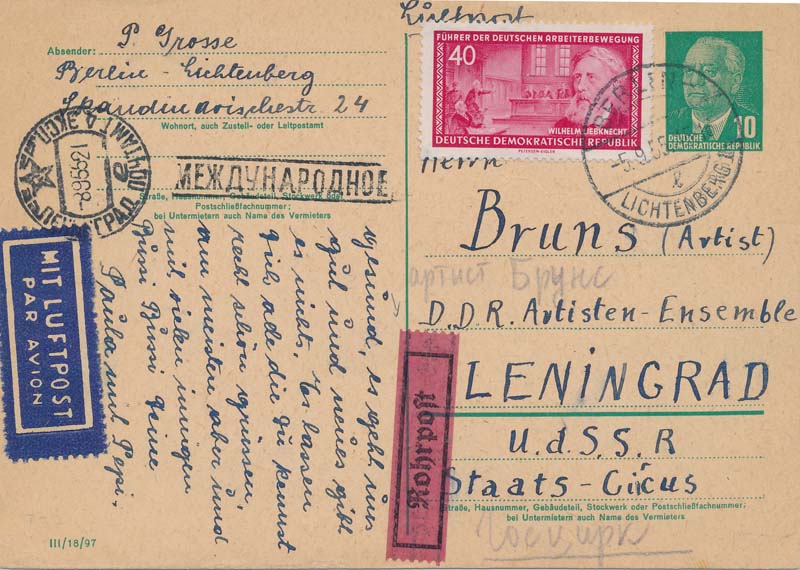 Luftpost
Absender:
P. Grosse
Berlin-Lichtenberg
Skandinavischestr. 24
Wohnort, auch Zustell- oder Leitpostamt
МЕЖДУНАРОДНОЕ
Straße, Hausnummer, Gebäudeteil, Stockwerk oder
Postschließfachnummer;
bei Untermietern auch Name des Vermieters
ЛЕНИНГРАД ПОЧТАМТ
ЭКСП.
е
-8955-21
MIT LUFTPOST
PAR AVION
gesund, es geht uns
gut und neues gibt
es nicht. Es lassen
dich alle die du kennst
recht schön grüssen,
am meisten aber und
mit vielen innigen
Bussi Bussi deine
Paula und Pepi.
III/18/97
FÜHRER DER DEUTSCHEN ARBEITERBEWEGUNG
40
WILHELM LIEBKNECHT
DEUTSCHE DEMOKRATISCHE REPUBLIK
PETERSEN-EIGLER
BERLIN
-5.9.55
l
LICHTENBERG 1
DEUTSCHE
DEMOKRATISCHE REPUBLIK
10
Herrn
Bruns (Artist)
артист Брунс
D.D.R. Artisten-Ensemble
LENINGRAD
U.d.S.S.R
Staats-Circus
Straße, Hausnummer, Gebäudeteil, Stockwerk oder Postschließfachnummer;
bei Untermietern auch Name des Vermieters
Госцирк
Rohrpost